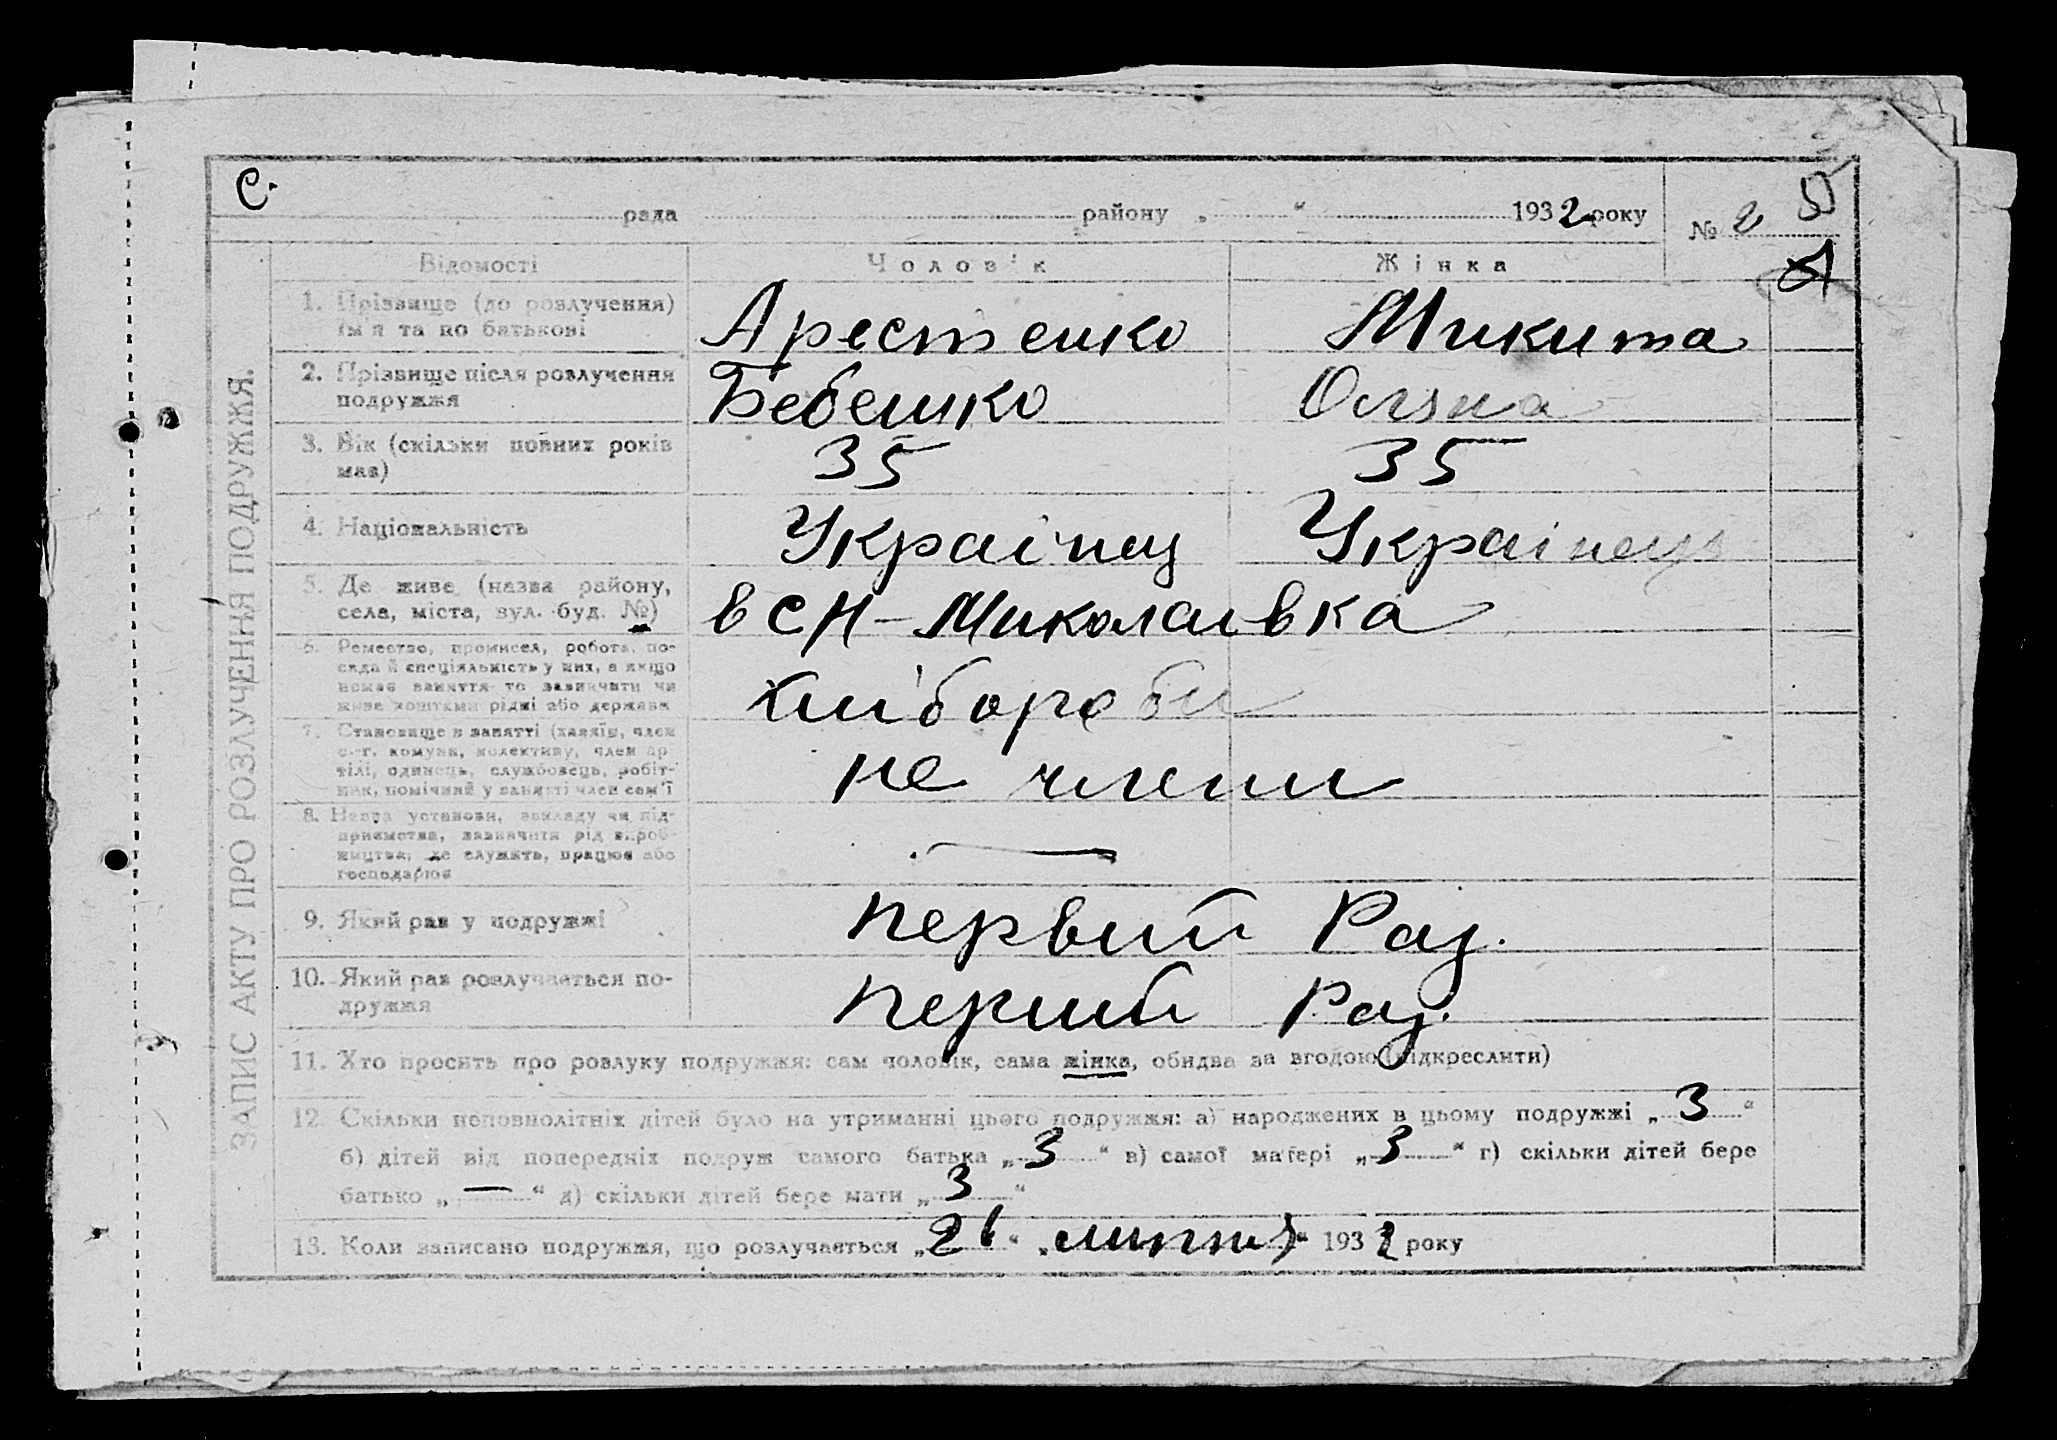 С.
рада району „ “ 1932 року № 2
5
Відомості Чоловік Жінка
1. Прізвище (до розлучення) ім'я та по батькові Арестенко Микита
2. Прізвище після розлучення подружжя Бебешко Оляна
3. Вік (скільки повних років мав) 35 35
4. Національність Украінец Украінець
5. Де живе (назва району, села, міста, вул. буд. №) в с Н-Миколаивка
6. Ремество, промисел, робота, посада й спеціяльність у них, а якщо немає заняття то зазначити чи живе коштами рідні або держави
хлібороби
7. Становище в занятті (хазяїн, член с-г. комуни, колективу, член артілі, одинець, службовець, робітник, помічний у занятті член сем'ї
не члени
8. Назва установи, закладу чи підприємства, зазначити рід виробництва, де служить, працює або господарює —
9. Який раз у подружжі первий Раз.
10. Який раз розлучається подружжя перший Раз.
11. Хто просить про розлуку подружжя: сам чоловік, сама жінка, обидва за згодою (підкреслити)
12. Скільки неповнолітніх дітей було на утриманні цього подружжя: а) народжених в цьому подружжі „3“
б) дітей від попередніх подруж самого батька „3“ в) самої матері „3“ г) скільки дітей бере
батько „—“ д) скільки дітей бере мати „3“
13. Коли записано подружжя, що розлучається „26“ „липня“ 1932 року
ЗАПИС АКТУ ПРО РОЗЛУЧЕННЯ ПОДРУЖЖЯ.